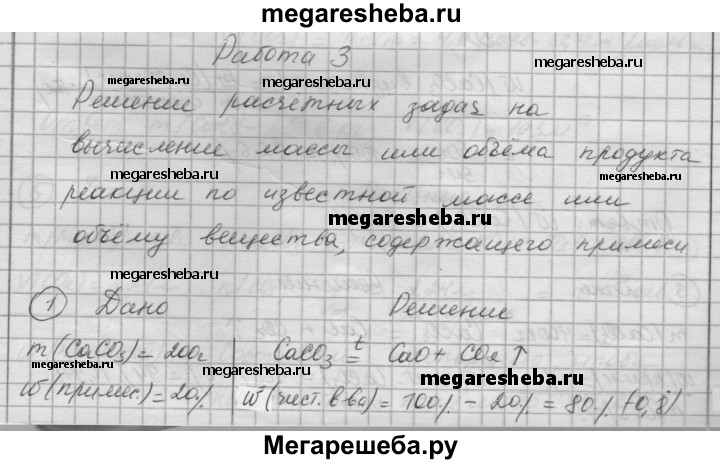 megaresheba.ru
Работа 3
megaresheba.ru
megaresheba.ru
megaresheba.ru
Решение расчётных задач на
вычисление массы или объёма продукта
megaresheba.ru
megaresheba.ru
реакции по известной массе или
megaresheba.ru
объёму вещества, содержащего примеси
megaresheba.ru
① Дано Решение
megaresheba.ru
m(CaCO₃)=200г CaCO₃ =ᵗ CaO + CO₂↑
megaresheba.ru
megaresheba.ru
ω(примес.)=20% ω(чист. в-ва) = 100% - 20% = 80% (0,8)
Мегарешеба.ру